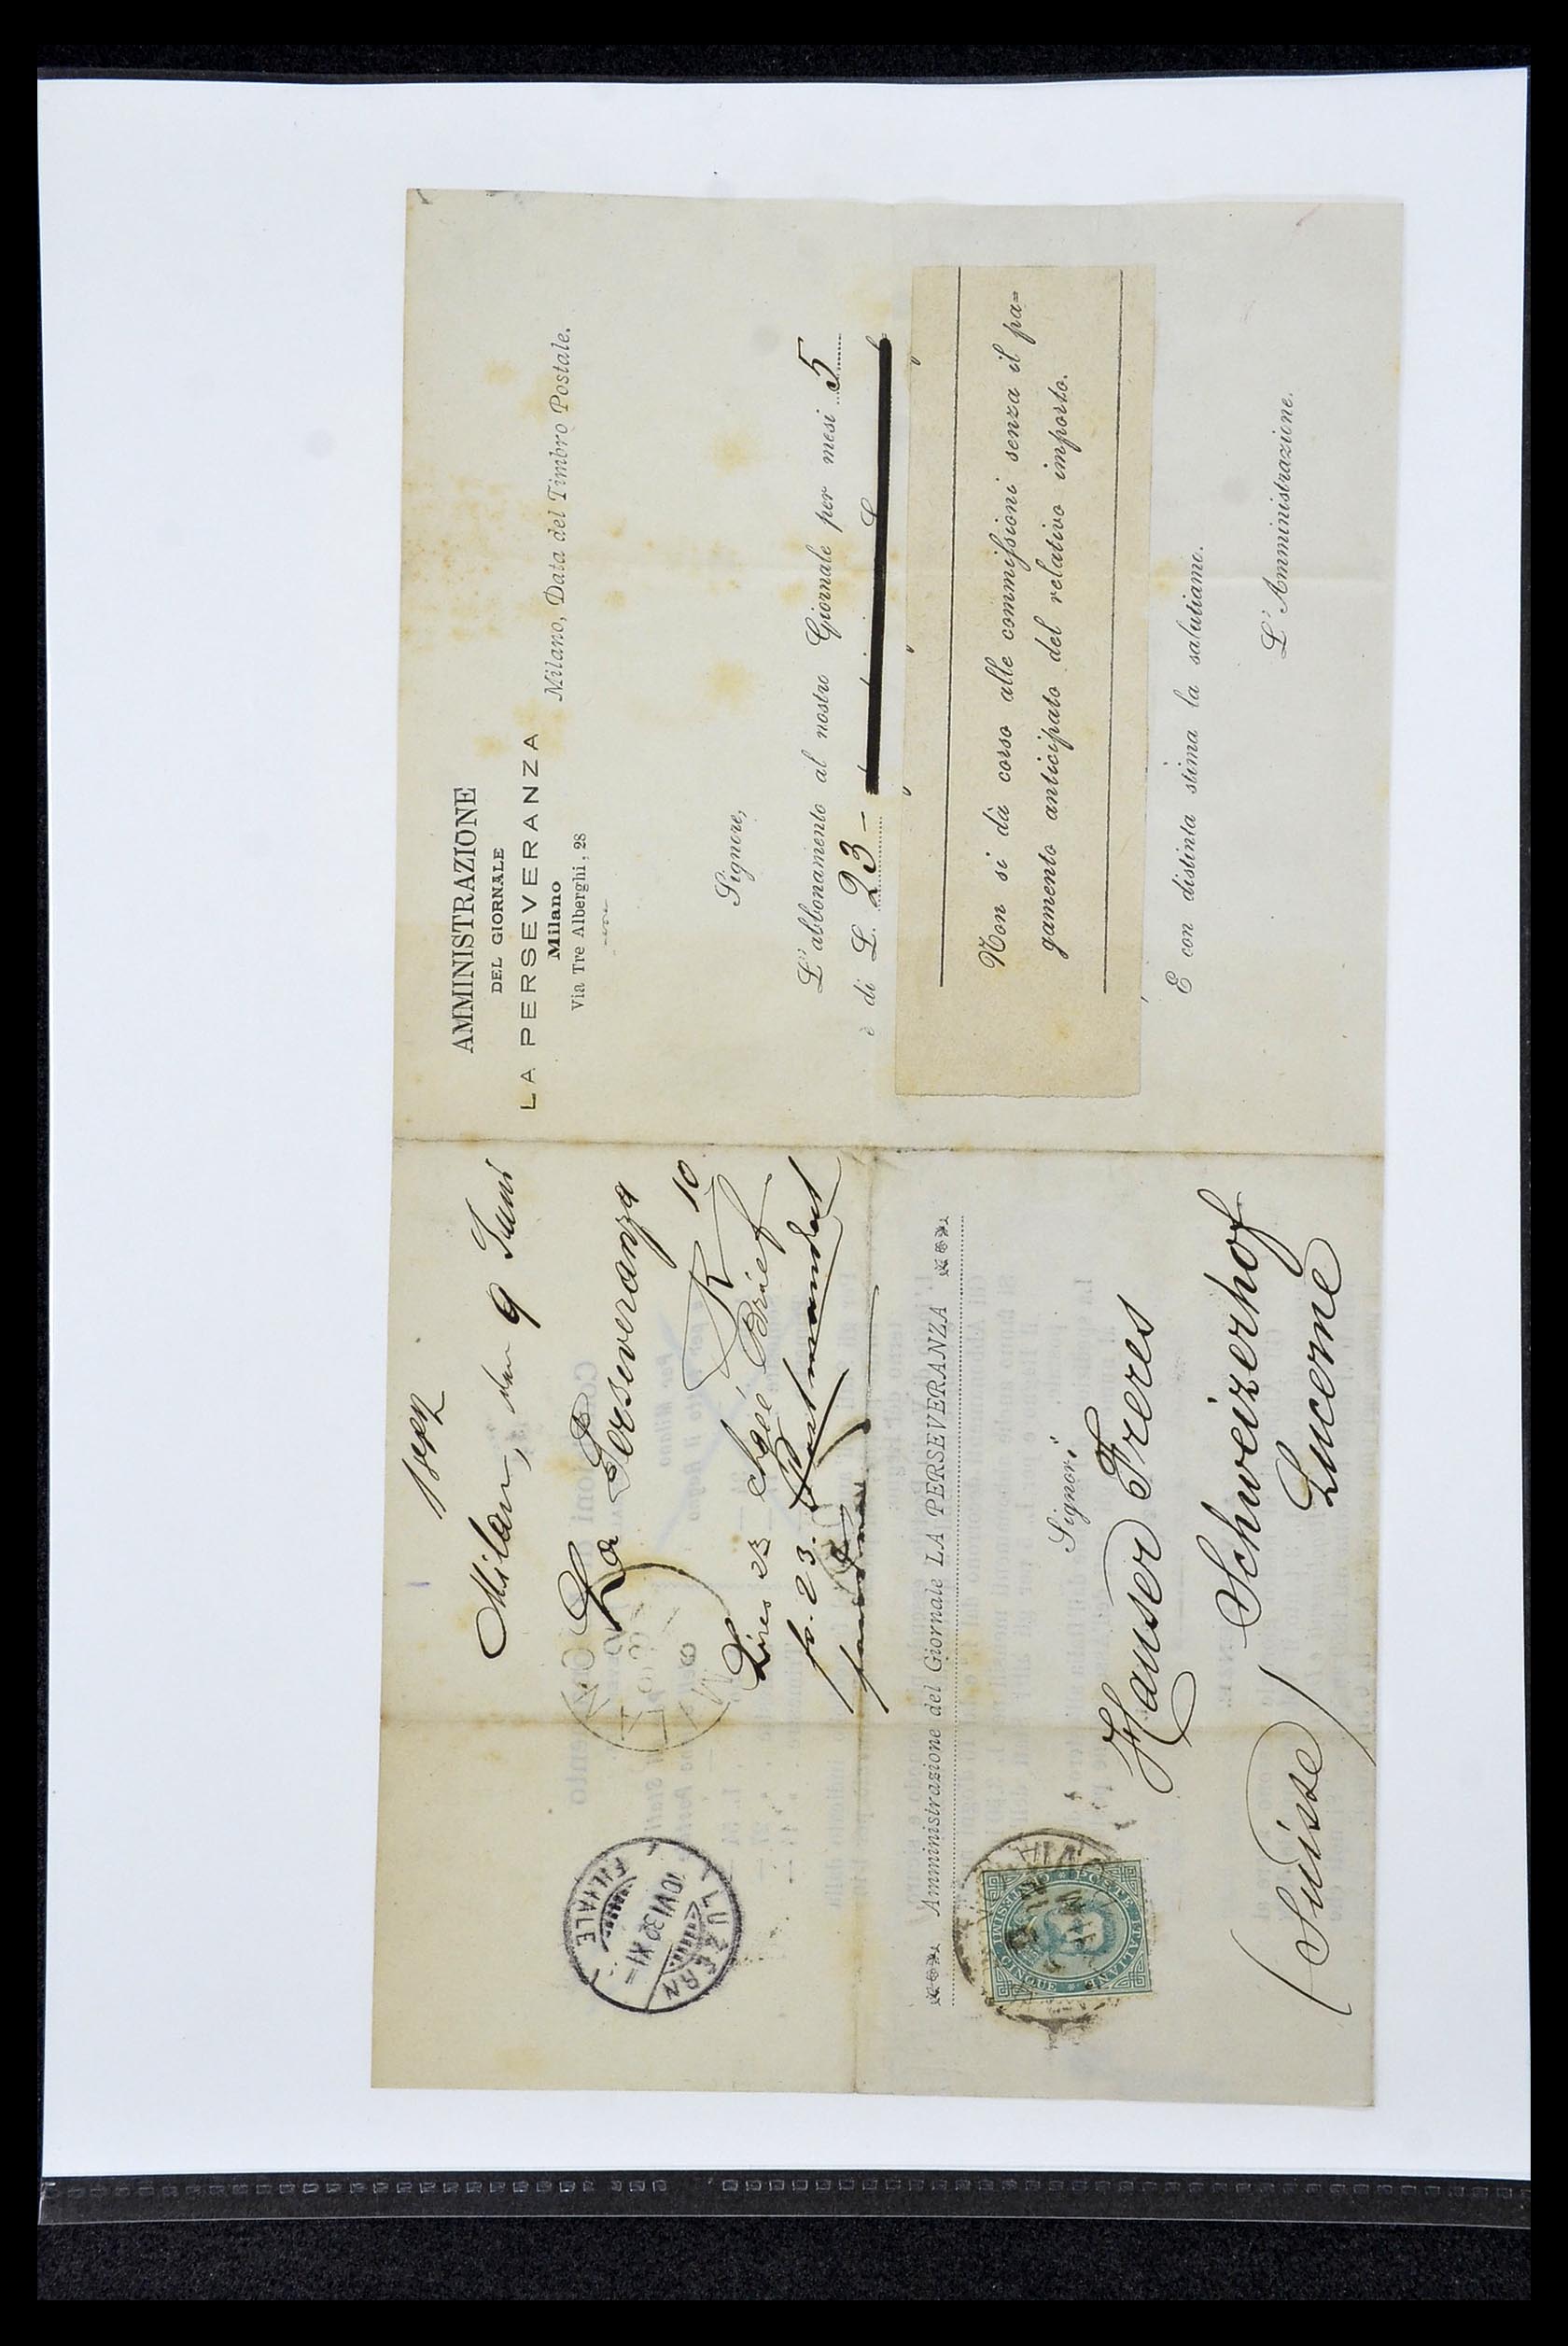 AMMINISTRAZIONE
DEL GIORNALE
LA PERSEVERANZA
Milano
Via Tre Alberghi, 28
Milano, Data del Timbro Postale.
Signore,
L'abbonamento al nostro Giornale per mesi 5
è di L. 23 -
Non si dà corso alle commissioni senza il pa=
gamento anticipato del relativo importo.
E con distinta stima la salutiamo.
L'Amministrazione.
Milan, den 9 Juni
La Perseveranza
10
R
Lires 23 chgé Brief
fr. 23. Postmandat
LUZERN
10 VI 92 XI-
FILIALE
Amministrazione del Giornale LA PERSEVERANZA
Signori
Hauser Freres
Schweizerhof
Lucerne
(Suisse)
POSTE ITALIANE
CINQUE CENTESIMI